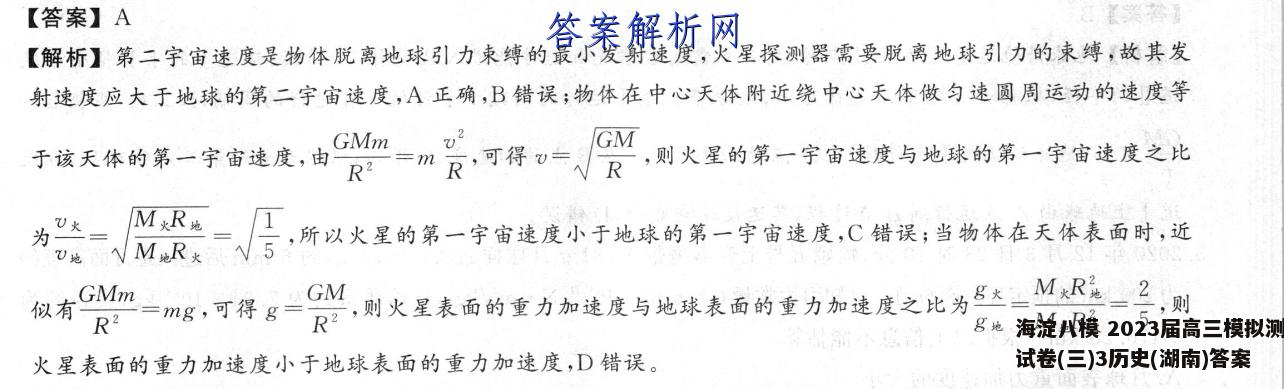 【答案】A
答案解析网
【解析】第二宇宙速度是物体脱离地球引力束缚的最小发射速度,火星探测器需要脱离地球引力的束缚,故其发
射速度应大于地球的第二宇宙速度,A 正确,B 错误;物体在中心天体附近绕中心天体做匀速圆周运动的速度等
于该天体的第一宇宙速度,由 GMm/R² = m v²/R,可得 v = √(GM/R),则火星的第一宇宙速度与地球的第一宇宙速度之比
为 v火/v地 = √(M火R地/M地R火) = √(1/5),所以火星的第一宇宙速度小于地球的第一宇宙速度,C 错误;当物体在天体表面时,近
似有 GMm/R² = mg,可得 g = GM/R²,则火星表面的重力加速度与地球表面的重力加速度之比为 g火/g地 = M火R²地/ = 2/5,则
火星表面的重力加速度小于地球表面的重力加速度,D 错误。
海淀八模 2023届高三模拟测
试卷(三)3历史(湖南)答案